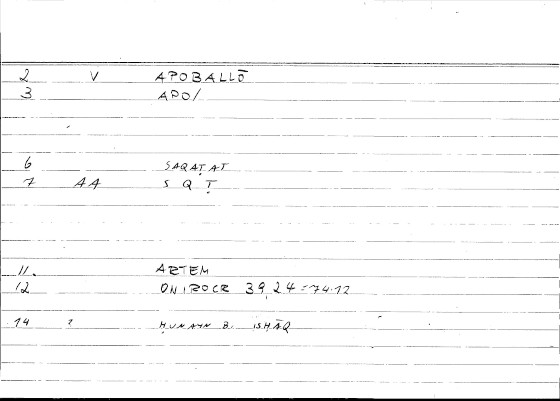 2 V APOBALLŌ
3 APO/
6 SAQAṬAT
7 AA S Q Ṭ
11. ARTEM
12 ONIROCR 39,24 = 74.12
14 ? ḤUNAYN B. ISḤĀQ